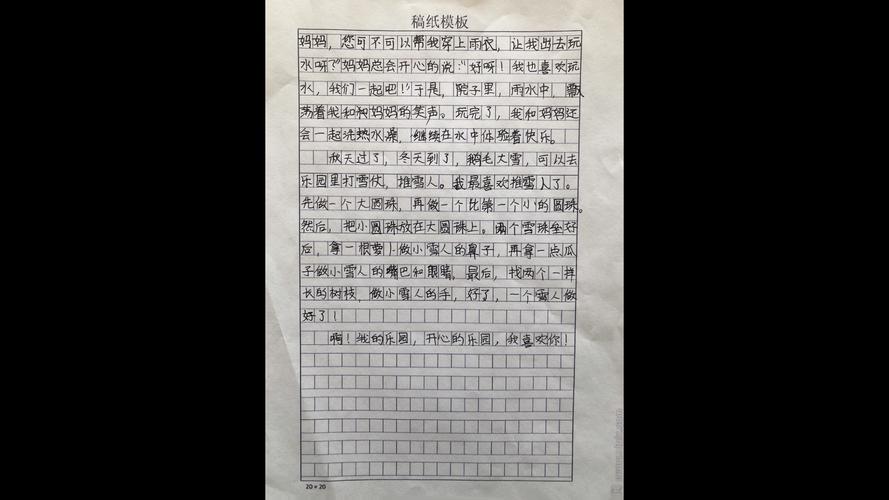 稿纸模板
妈妈，您可不可以帮我穿上雨衣，让我出去玩
水呀？”妈妈总会开心的说：“好呀！我也喜欢玩
水，我们一起吧！”于是，院子里，雨水中，飘
荡着我和妈妈的笑声。玩完了，我和妈妈还
会一起洗热水澡，继续在水中体验着快乐。
秋天过了，冬天到了，鹅毛大雪，可以去
乐园里打雪仗，推雪人。我最喜欢推雪人了。
先做一个大圆珠，再做一个比第一个小的圆珠。
然后，把小圆珠放在大圆珠上。两个雪珠全好
后，拿一根萝卜做小雪人的鼻子，再拿一点瓜
子做小雪人的嘴巴和眼睛，最后，找两个一样
长的树枝，做小雪人的手，好了，一个雪人做
好了！
啊！我的乐园，开心的乐园，我喜欢你！
20*20